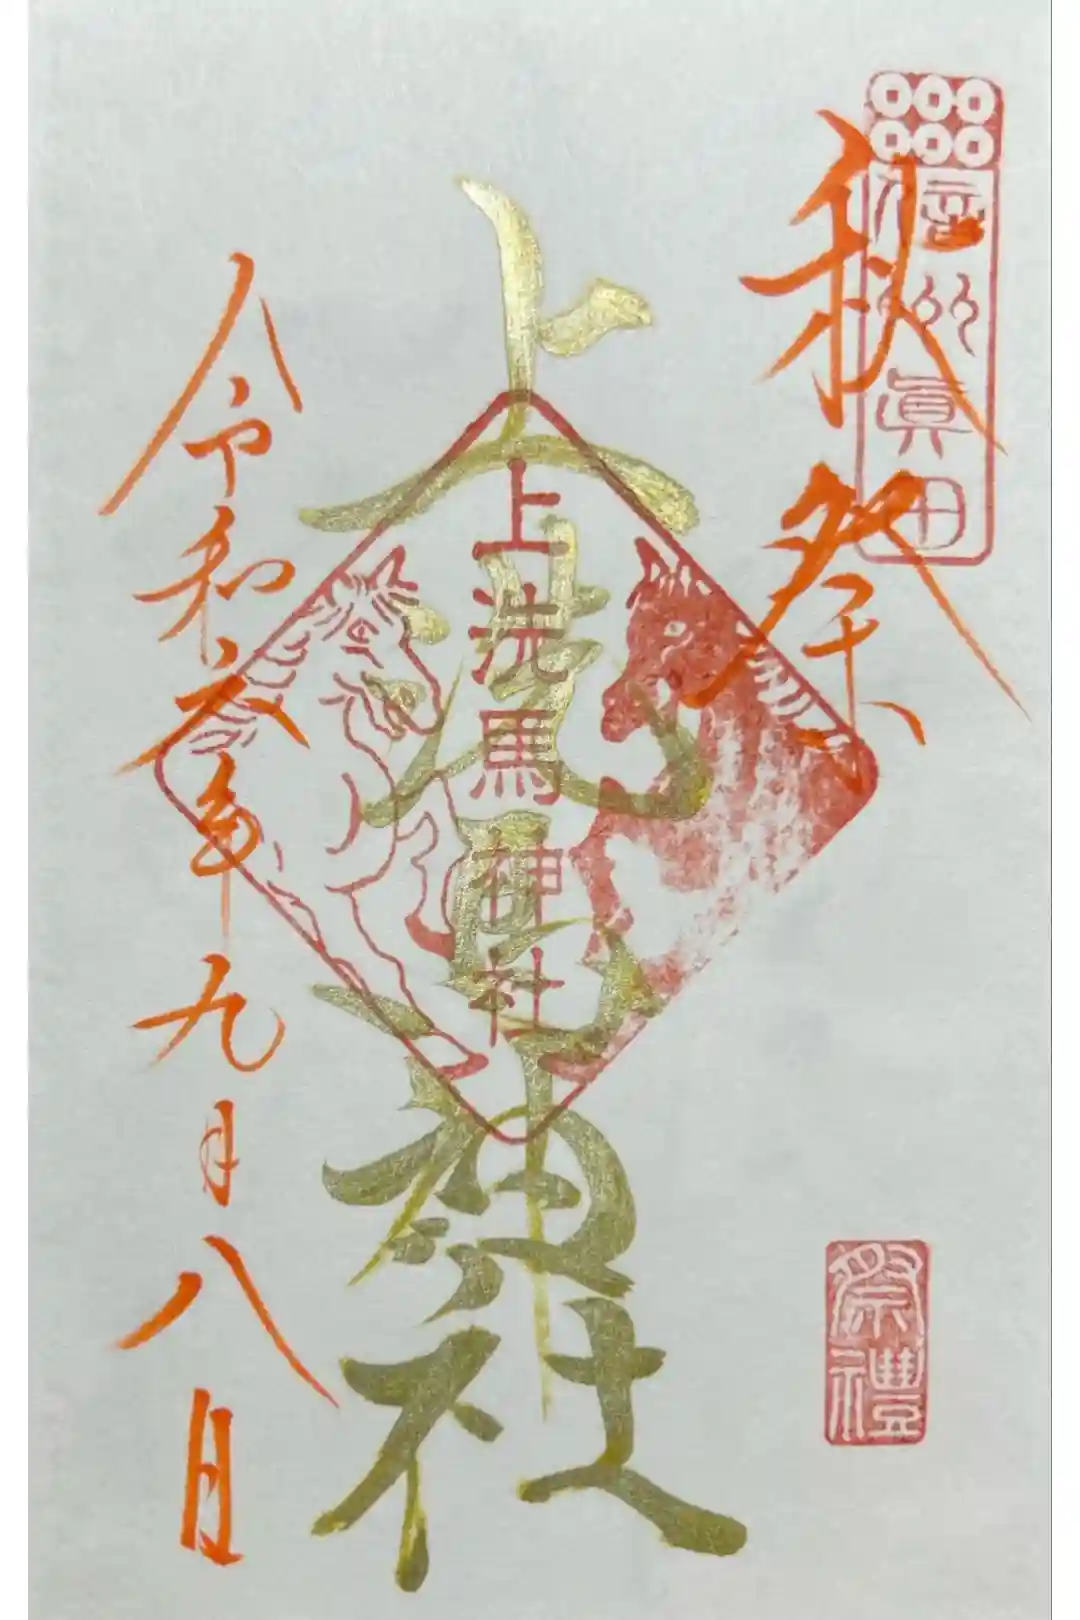 信州眞田
秋祭
祭禮
上洗馬神社
上洗馬神社
令和六年九月八日